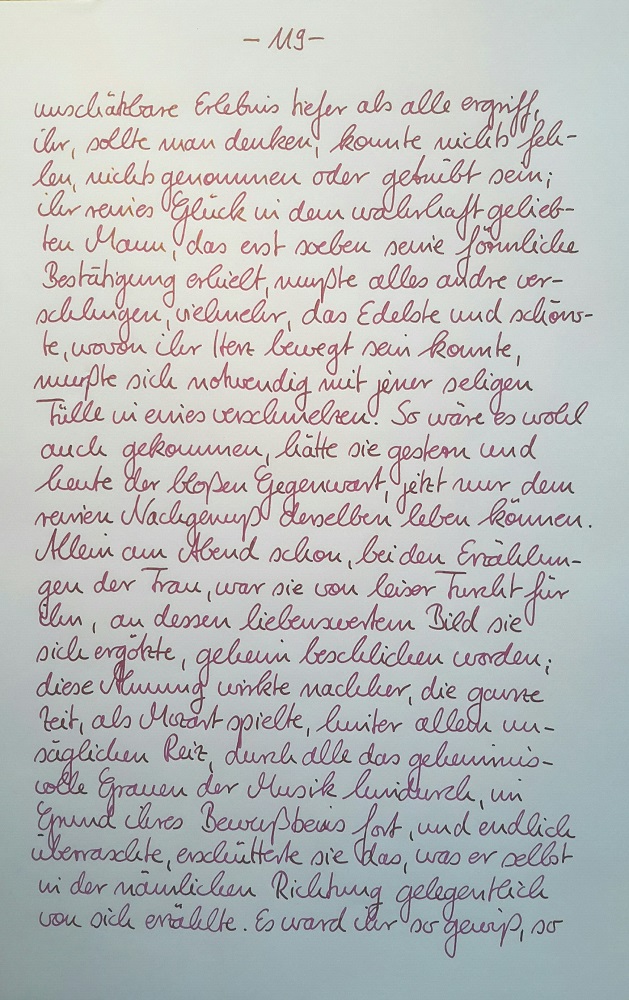 - 119 -
unschätzbare Erlebnis tiefer als alle ergriff,
ihr, sollte man denken, konnte nichts feh-
len, nichts genommen oder getrübt sein;
ihr reines Glück in dem wahrhaft gelieb-
ten Mann, das erst soeben seine förmliche
Bestätigung erhielt, mußte alles andre ver-
schlingen, vielmehr, das Edelste und schöns-
te, wovon ihr Herz bewegt sein konnte,
mußte sich notwendig mit jener seligen
Fülle in eines verschmelzen. So wäre es wohl
auch gekommen, hätte sie gestern und
heute der bloßen Gegenwart, jetzt nur dem
reinen Nachgenuß derselben leben können.
Allein am Abend schon, bei den Erzählun-
gen der Frau, war sie von leiser Furcht für
ihn, an dessen liebenswertem Bild sie
sich ergötzte, geheim beschlichen worden;
diese Ahnung wirkte nachher, die ganze
Zeit, als Mozart spielte, hinter allem un-
säglichen Reiz, durch alle das geheimnis-
volle Grauen der Musik hindurch, im
Grund ihres Bewußtseins fort, und endlich
überraschte, erschütterte sie das, was er selbst
in der nämlichen Richtung gelegentlich
von sich erzählte. Es ward ihr so gewiß, so